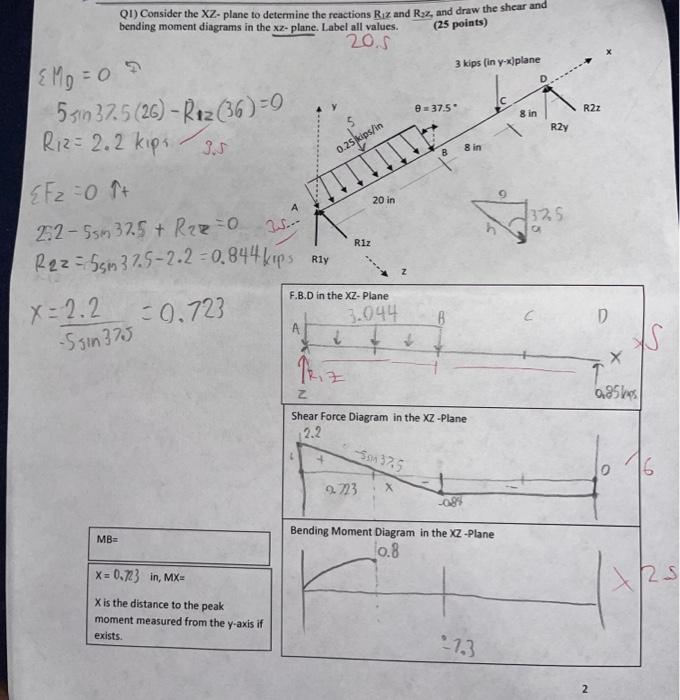 Q1) Consider the XZ- plane to determine the reactions R1z and R2z, and draw the shear and
bending moment diagrams in the xz- plane. Label all values. (25 points)
20.5
ΣMD = 0
5sin37.5(26) - R1z(36) = 0
R1z = 2.2 kips
3.5
ΣFz = 0 ↑+
2.2 - 5sin37.5 + R2z = 0
3.5
R2z = 5sin37.5 - 2.2 = 0.844 kips
x = 2.2 / -5sin37.5 = 0.723
3 kips (in y-x)plane
x
Y
θ = 37.5°
D
C
8 in
R2z
R2y
5
0.25 kips/in
B
8 in
20 in
A
R1z
R1y
z
o
37.5
h
a
F.B.D in the XZ- Plane
3.044
A
B
C
D
X
R1z
Z
0.85 kips
x5
Shear Force Diagram in the XZ -Plane
2.2
+
-5sin37.5
0.723
x
-
-
-0.84
0
6
Bending Moment Diagram in the XZ -Plane
0.8
-7.3
MB=
X = 0.723 in, MX=
X is the distance to the peak
moment measured from the y-axis if
exists.
2